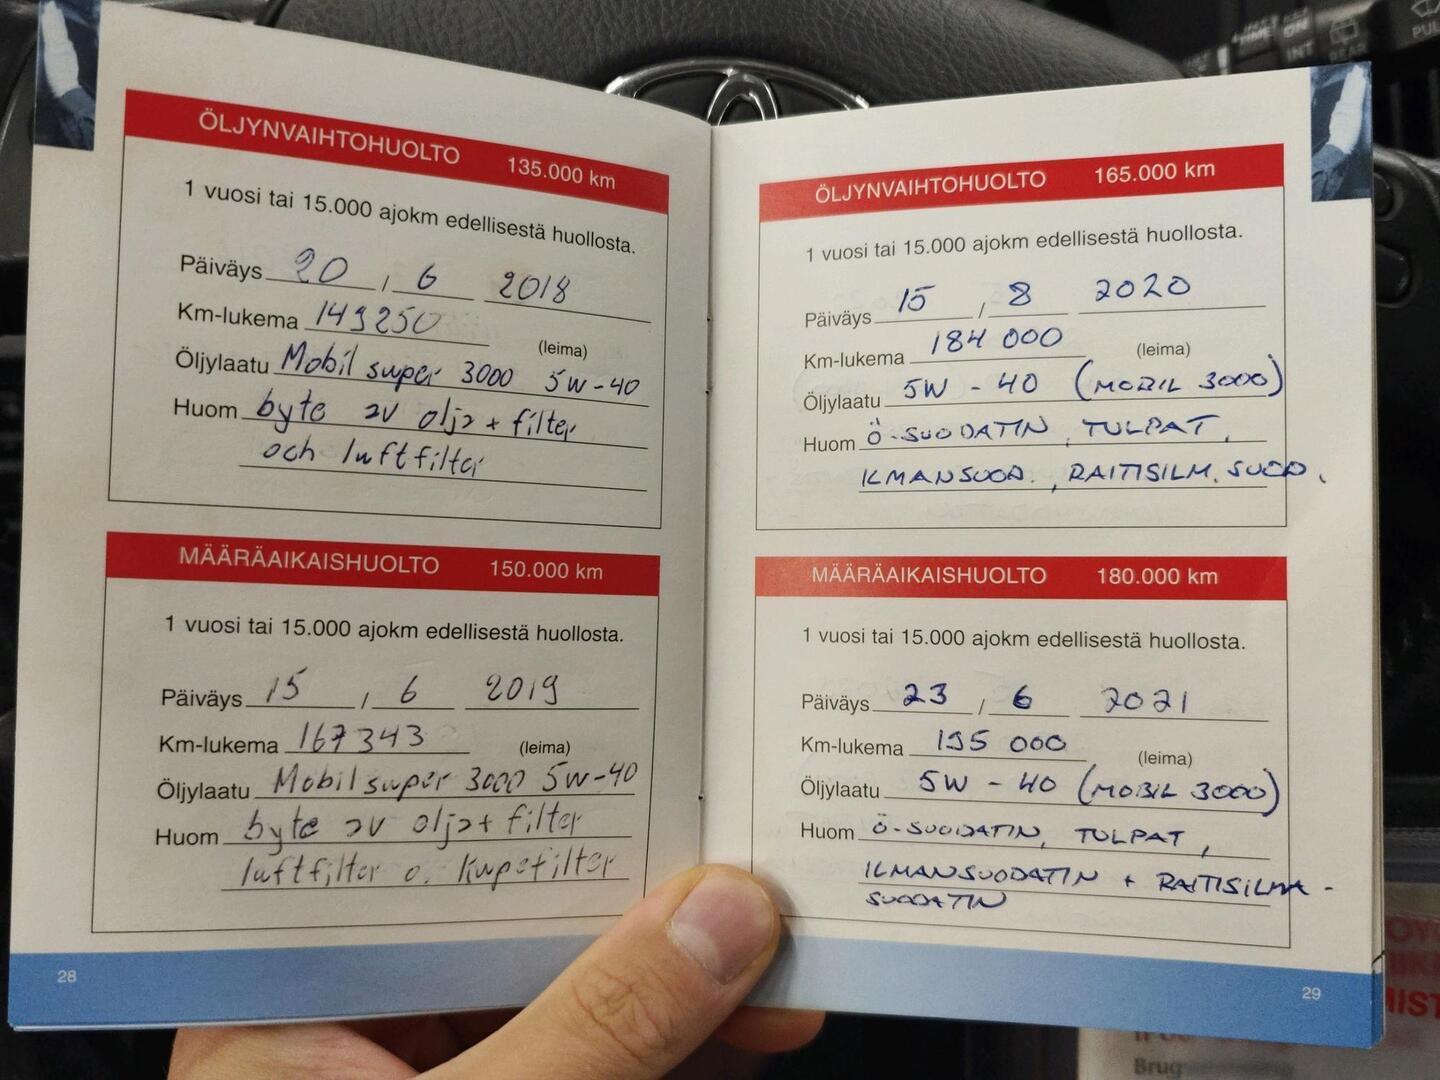 ÖLJYNVAIHTOHUOLTO 135.000 km
1 vuosi tai 15.000 ajokm edellisestä huollosta.
Päiväys 20 / 6 2018
Km-lukema 149250
(leima)
Öljylaatu Mobil super 3000 5W-40
Huom byte av olja + filter
och luftfilter
MÄÄRÄAIKAISHUOLTO 150.000 km
1 vuosi tai 15.000 ajokm edellisestä huollosta.
Päiväys 15 / 6 2019
Km-lukema 167343
(leima)
Öljylaatu Mobil super 3000 5W-40
Huom byte av olja + filter
luftfilter o. kupefilter
28
ÖLJYNVAIHTOHUOLTO 165.000 km
1 vuosi tai 15.000 ajokm edellisestä huollosta.
Päiväys 15 / 8 2020
Km-lukema 184 000
(leima)
Öljylaatu 5W - 40 (MOBIL 3000)
Huom Ö-SUODATIN, TULPAT,
ILMANSUOD., RAITISILM. SUOD.
MÄÄRÄAIKAISHUOLTO 180.000 km
1 vuosi tai 15.000 ajokm edellisestä huollosta.
Päiväys 23 / 6 2021
Km-lukema 195 000
(leima)
Öljylaatu 5W - 40 (MOBIL 3000)
Huom Ö-SUODATIN, TULPAT,
ILMANSUODATIN + RAITISILMA-
SUODATIN
29
ON
INT
REAR
Brug